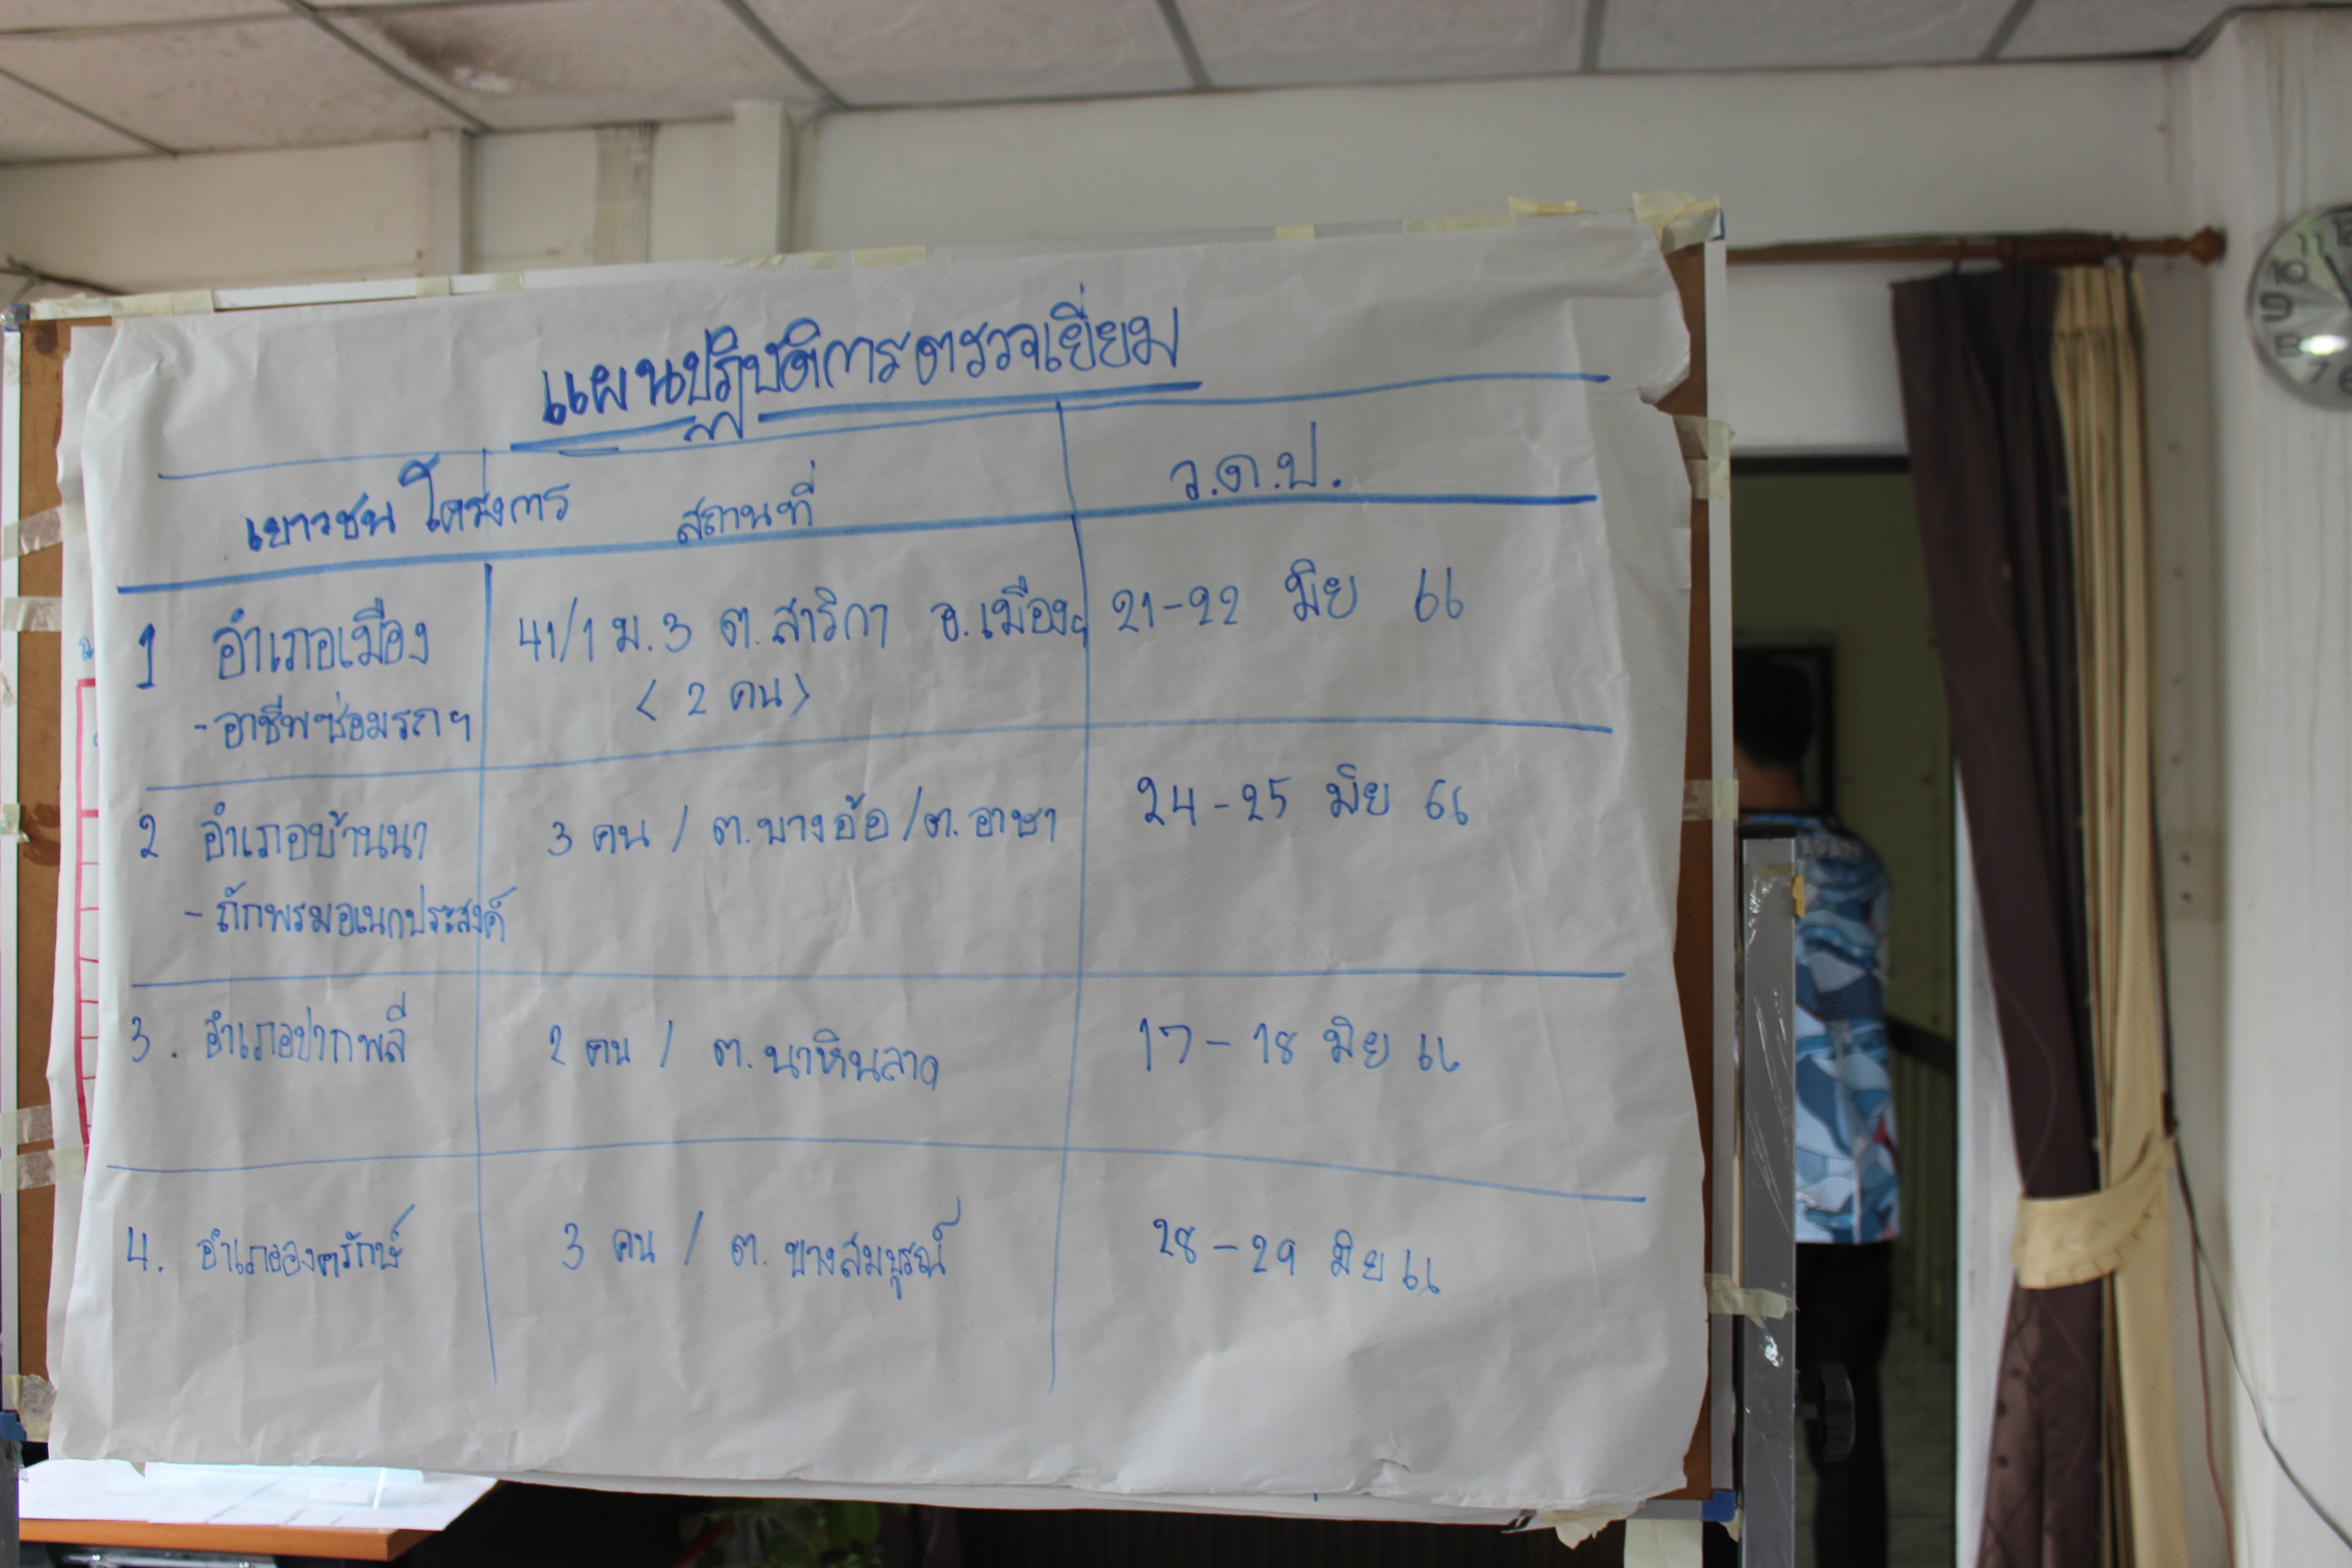 แผนปฏิบัติการตรวจเยี่ยม
เยาวชน โครงการ สถานที่ ว.ด.ป.
1 อำเภอเมือง 41/1 ม.3 ต.สาริกา อ.เมืองฯ 21-22 มิย 66
-อาชีพซ่อมรถฯ < 2 คน >
2 อำเภอบ้านนา 3 คน / ต.บางอ้อ /ต.อาษา 24-25 มิย 66
- ถักพรมอเนกประสงค์
3. อำเภอปากพลี 2 คน / ต.นาหินลาด 17-18 มิย 66
4. อำเภอองครักษ์ 3 คน / ต. บางสมบูรณ์ 28-29 มิย 66
11
10
9
8
7